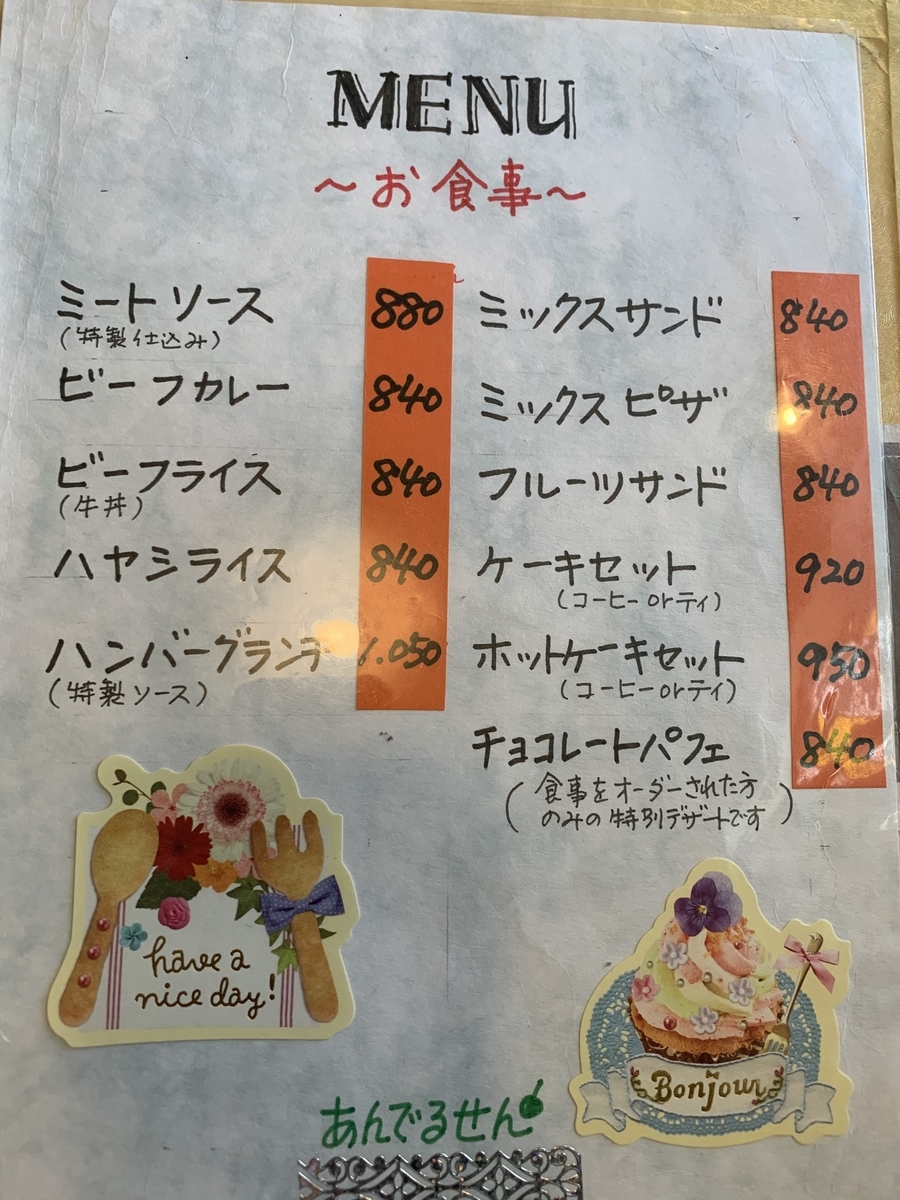 MENU
～お食事～
ミートソース 880
（特製仕込み）
ビーフカレー 840
ビーフライス 840
（牛丼）
ハヤシライス 840
ハンバーグランチ 1.050
（特製ソース）
ミックスサンド 840
ミックスピザ 840
フルーツサンド 840
ケーキセット 920
（コーヒーorティ）
ホットケーキセット 950
（コーヒーorティ）
チョコレートパフェ 840
（食事をオーダーされた方
のみの特別デザートです）
have a
nice day!
Bonjour
あんでるせん